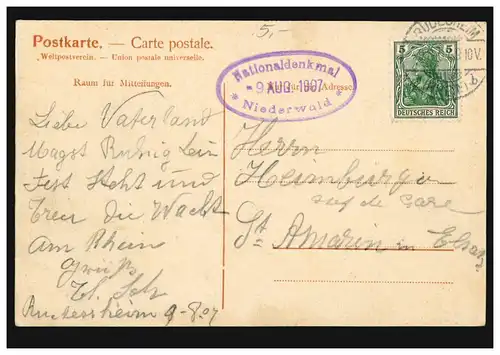 5,-
Postkarte. — Carte postale.
Weltpostverein. – Union postale universelle.
Raum für Mitteilungen.
Nationaldenkmal
- 9 AUG. 1907
* Niederwald *
Adresse
RÜDESHEIM
10V.
b
5
DEUTSCHES REICH
Liebe Vaterland
Magst Ruhig Sein
Fest Steht und
Treu die Wacht
Am Rhein
Herrn
Heimburger
auf de Gare
St Amarin in Elsaz
9-8.07